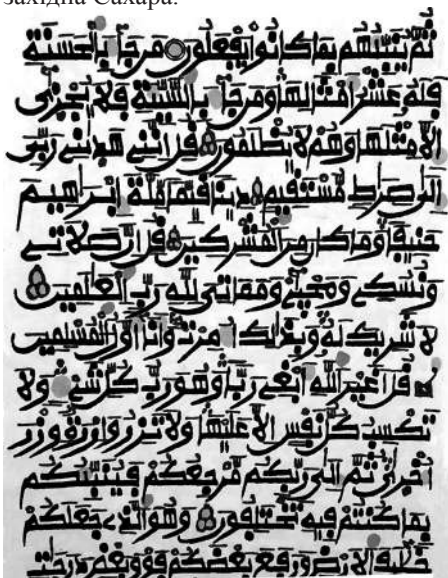 західна Сахара.
ثم ينبئهم بما كانوا يفعلون من جا بالحسنة
فله عشر امثالها ومن جا بالسيئة فلا يجزى
الا مثلها وهم لا يظلمون قل انني هديني ربي
الى صراط مستقيم دينا قيما ملة ابراهيم
حنيفا وما كان من المشركين قل ان صلاتي
ونسكي ومحياي ومماتي لله رب العلمين
لا شريك له وبذلك امرت وانا اول المسلمين
قل اغير الله ابغي ربا وهو رب كل شيء ولا
تكسب كل نفس الا عليها ولا تزر وازرة وزر
اخرى ثم الى ربكم مرجعكم فينبئكم
بما كنتم فيه تختلفون وهو الذي جعلكم
خلائف الارض ورفع بعضكم فوق بعض درجت